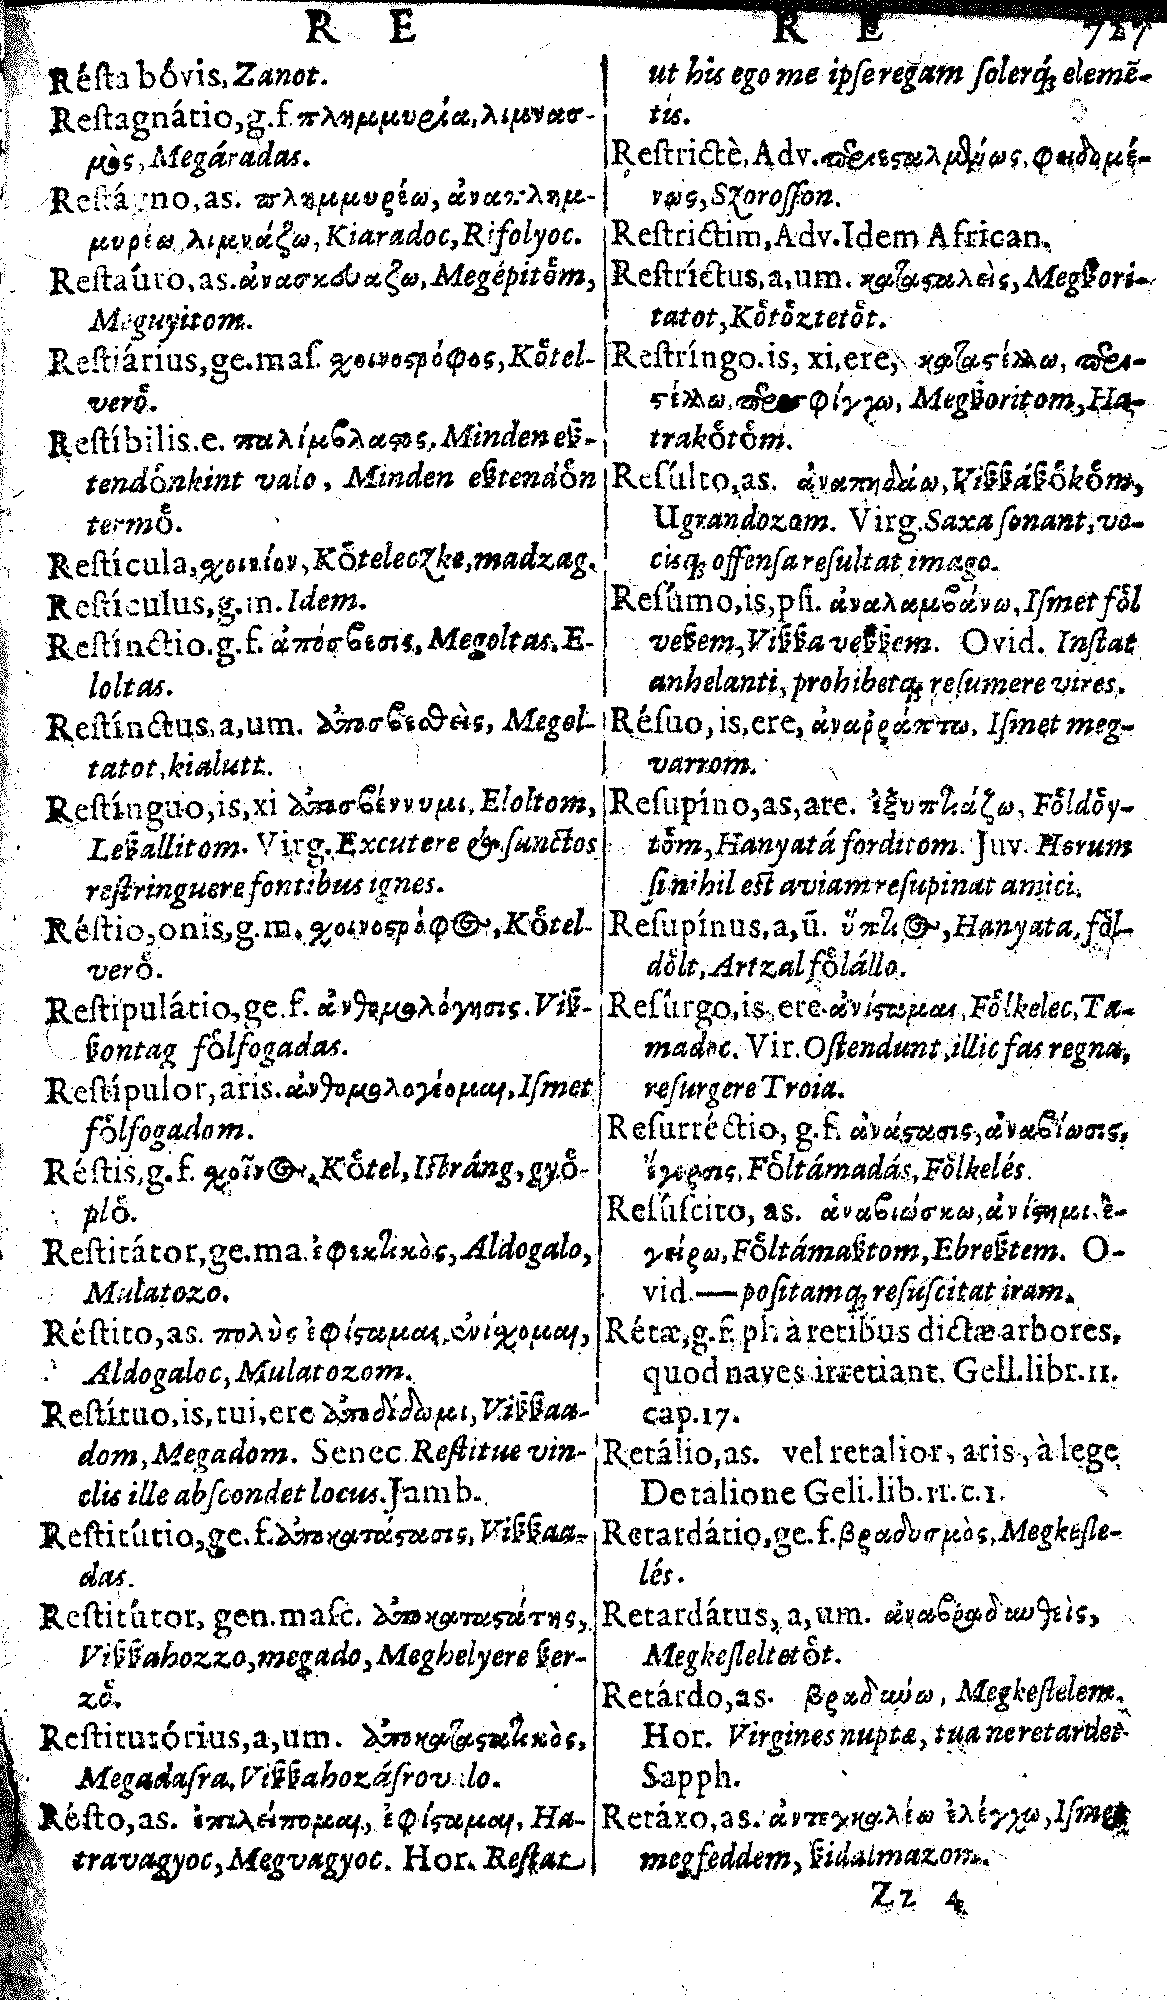 R E
R E 727
Résta bóvis, Zanot.
Restagnátio, g. f. πλημμυρία, λιμνασ-
μὸς, Megáradas.
Restágno, as. πλημμυρέω, ἀναπλημ-
μυρέω λιμνάζω, Kiaradoc, Rifolyoc.
Restaúro, as. ἀνασκευαζω, Megépitȍm,
Meguyitom.
Restiárius, ge. maſ. χοινοςρόφος, Kȍtel-
verȍ.
Restíbilis. e. παλίμβλαςος, Minden eß-
tendȍnkint valo, Minden eßtendȍn
termȍ.
Restícula, χοινίον, Kȍteleczke, madzag.
Restículus, g. m. Idem.
Restínctio. g. f. ἀπόσβεσις, Megoltas. E-
loltas.
Restínctus, a, um. ἀποσβεσθεὶς, Megol-
tatot, kialutt.
Restínguo, is, xi ἀποσβέννυμι, Eloltom,
Leßallitom. Virg. Excutere & sunctos
restringuere fontibus ignes.
Réstio, onis, g. m. χοινοςρόφος, Kȍtel-
verȍ.
Restipulátio, ge. f. ἀνθομολόγησις. Viß-
ßontag fȍlfogadas.
Restípulor, aris. ἀνθομολογέομαι, Iſmet
fȍlſogadom.
Réstis, g. f. χοῖνος, Kȍtel, Iſtráng, gyȍ-
plȍ.
Restitátor, ge. ma. ἐφεκτικὸς, Aldogalo,
Mulatozo.
Réstito, as. πολὺς ἐφίςαμαι, ἐνίχομαι,
Aldogaloc, Mulatozom.
Restítuo, is, tui, ere ἀποδίδωμι, Vißßaa-
dom, Megadom. Senec. Restitue vin-
clis ille abſcondet locus. Jamb.
Restitútio, ge. f. ἀποκατάςασις, Vißßaa-
das.
Restitútor, gen. maſc. ἀποκαταςάτης,
Vißßahozzo, megado, Meghelyere ßer-
zȍ.
Restitutórius, a, um. ἀποκαταςατικὸς,
Megadaſra, Vißßahozáſrov lo.
Résto, as. ἐπιλείπομαι, ἐφίςαμαι, Ha-
travagyoc, Megvagyoc. Hor. Restat
ut his ego me ipſe regam ſolerq́; elemē-
tis.
Restrictè, Adv. περιεςαλμένως, φειδομέ-
νως, Szoroſſon.
Restrictim, Adv. Idem African.
Restríctus, a, um. καταςαλεὶς, Megßori-
tatot, Kȍtȍztetȍt.
Restríngo. is, xi, ere, καταςέλλω, περι-
ςέλλω, περισφίγγω, Megßoritom, Ha-
trakȍtȍm.
Reſúlto, as. ἀναπηδάω, Vißßáßȍkȍm,
Ugrandozom. Virg. Saxa ſonant, vo-
ciſq; offenſa reſultat imago.
Reſúmo, is, pſi. ἀναλαμβάνω, Iſmet fȍl
veßem, Vißßa veßßem. Ovid. Inſtat
anhelanti, prohibetq; reſumere vires.
Réſuo, is, ere, ἀναῤῥάπτω, Iſmet meg-
varrom.
Reſupíno, as, are. ἐξυπτιάζω, Fȍldȍy-
tȍm, Hanyatá forditom. Juv. Horum
ſi nihil est aviam reſupinat amici.
Reſupínus, a, ū. ὕπτιος, Hanyata, fȍl-
dȍlt, Artzal fȍlállo.
Reſúrgo, is, ere. ἀνίςαμαι, Fȍlkelec, Ta-
madoc. Vir. Oſtendunt, illic fas regna,
reſurgere Troia.
Reſurréctio, g. f. ἀνάςασις, ἀναβίωσις,
ἔγερσις, Fȍltámadás, Fȍlkelés.
Reſúſcito, as. ἀναβιώσκω, ἀνίςημι, ἐ-
γείρω, Fȍltámaßtom, Ebreßtem. O-
vid. — poſitamq; reſuſcitat iram.
Rétæ, g. f. pl. à retibus dictæ arbores,
quod naves irretiant. Gell. libr. 11.
cap. 17.
Retálio, as. vel retalior, aris, à lege
De talione Geli. lib. 11. c. 1.
Retardátio, ge. f. βραδυσμὸς, Megkeſle-
lés.
Retardátus, a, um. ἀναβραδυνθεὶς,
Megkeſleltetȍt.
Retárdo, as. βραδύνω, Megkeſlelem.
Hor. Virgines nuptæ, tua ne retardet
Sapph.
Retáxo, as. ἀντεγκαλέω ἐλέγχω, Iſmet
megfeddem, ßidalmazom.
Zz 4